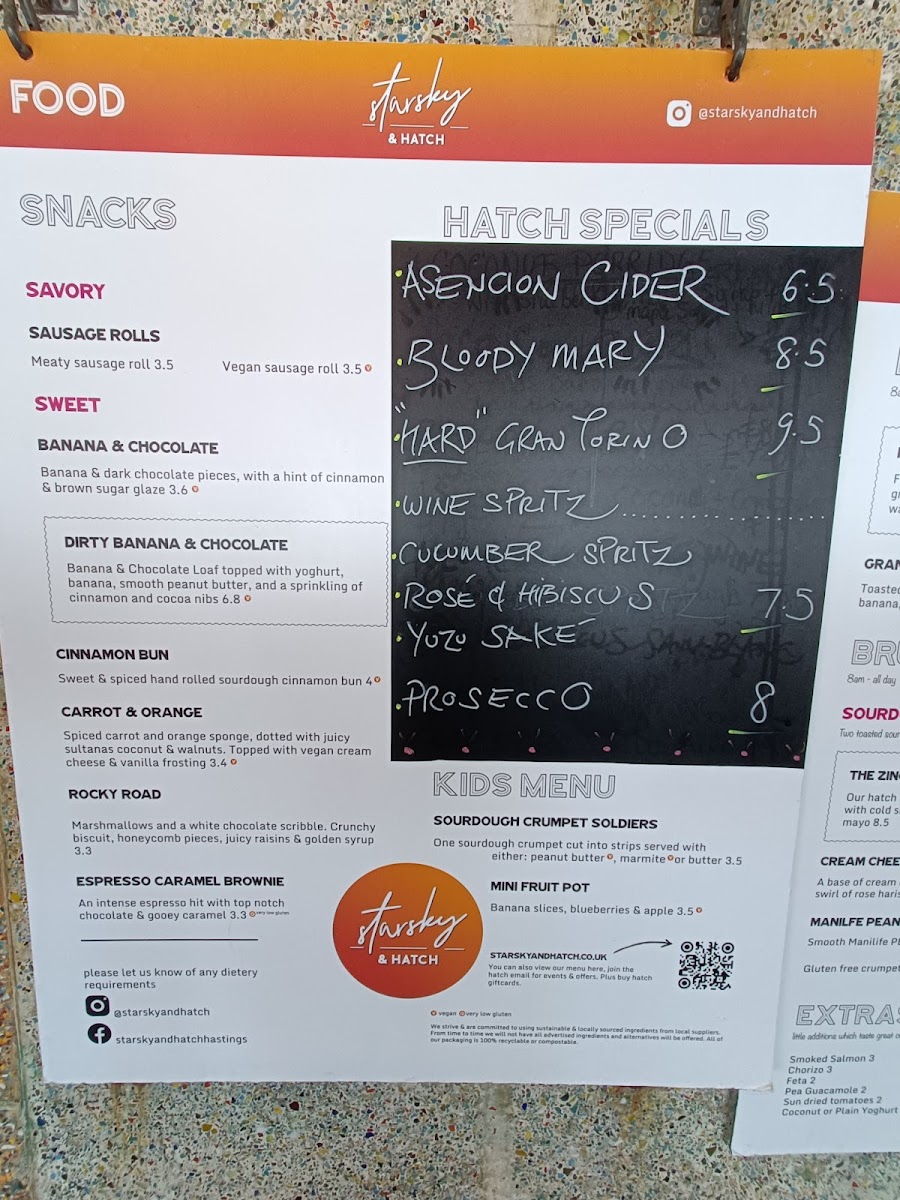 FOOD
starsky
& HATCH
@starskyandhatch
SNACKS
SAVORY
SAUSAGE ROLLS
Meaty sausage roll 3.5
Vegan sausage roll 3.5
SWEET
BANANA & CHOCOLATE
Banana & dark chocolate pieces, with a hint of cinnamon
& brown sugar glaze 3.6
DIRTY BANANA & CHOCOLATE
Banana & Chocolate Loaf topped with yoghurt,
banana, smooth peanut butter, and a sprinkling of
cinnamon and cocoa nibs 6.8
CINNAMON BUN
Sweet & spiced hand rolled sourdough cinnamon bun 4
CARROT & ORANGE
Spiced carrot and orange sponge, dotted with juicy
sultanas coconut & walnuts. Topped with vegan cream
cheese & vanilla frosting 3.4
ROCKY ROAD
Marshmallows and a white chocolate scribble. Crunchy
biscuit, honeycomb pieces, juicy raisins & golden syrup
3.3
ESPRESSO CARAMEL BROWNIE
An intense espresso hit with top notch
chocolate & gooey caramel 3.3 very low gluten
please let us know of any dietery
requirements
@starskyandhatch
starskyandhatchhastings
HATCH SPECIALS
ASENCION CIDER 6.5
BLOODY MARY 8.5
"HARD" GRAN TORINO 9.5
WINE SPRITZ....................
CUCUMBER SPRITZ
ROSÉ & HIBISCUS 7.5
YUZU SAKÉ
PROSECCO 8
KIDS MENU
SOURDOUGH CRUMPET SOLDIERS
One sourdough crumpet cut into strips served with
either: peanut butter, marmite or butter 3.5
MINI FRUIT POT
Banana slices, blueberries & apple 3.5
starsky
& HATCH
STARSKYANDHATCH.CO.UK
You can also view our menu here, join the
hatch email for events & offers. Plus buy hatch
giftcards.
vegan very low gluten
We strive & are committed to using sustainable & locally sourced ingredients from local suppliers.
From time to time we will not have all advertised ingredients and alternatives will be offered. All of
our packaging is 100% recyclable or compostable.
GRAN
Toasted
banana,
BRU
8am - all day
SOURD
Two toasted sour
THE ZIN
Our hatch
with cold s
mayo 8.5
CREAM CHEE
A base of cream
swirl of rose haris
MANILFE PEAN
Smooth Manilife P
Gluten free crumpet
EXTRAS
little additions which taste great o
Smoked Salmon 3
Chorizo 3
Feta 2
Pea Guacamole 2
Sun dried tomatoes 2
Coconut or Plain Yoghurt